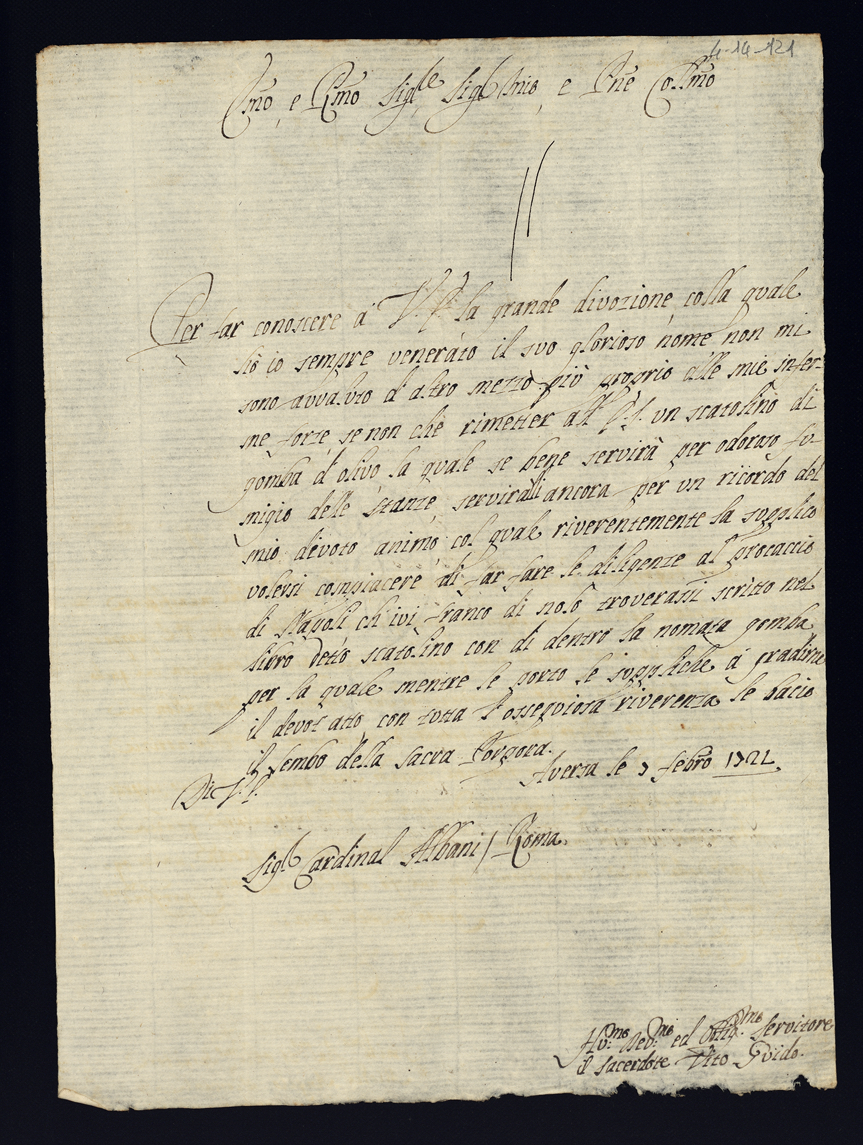 4-14-121
Emo, e Rmo Sigle Sigle Pnie, e Pne Colmo
Per far conoscere á V. la grande divozione, colla quale
hò io sempre venerato il suo glorioso nome non mi
sono avvaluto d'altro mezzo più proprio alle mie infer-
me forze, se non che rimetter all' un scatolino di
gomba d'olivo, la quale se bene servirà per odoroso fu-
migio delle stanze, serviralli ancora per un ricordo del
mio devoto animo, col quale riverentemente la supplico
volersi compiacere di far fare le diligenze al procaccio
di Napoli ch'ivi franco di nolo troverassi scritto nel
libro detto scatolino con di dentro la nomata gomba,
per la quale mentre le porto le suppliche á gradirne
il devot'atto, con tutta l'ossequiosa riverenza le bacio
il lembo della sacra Porpora.
Aversa le 7 febro 1721
Di V.
Sigle Cardinal Albani / Roma
Hu:mo Dev:mo ed Obblig:mo servitore
il sacerdote Vito Guido.